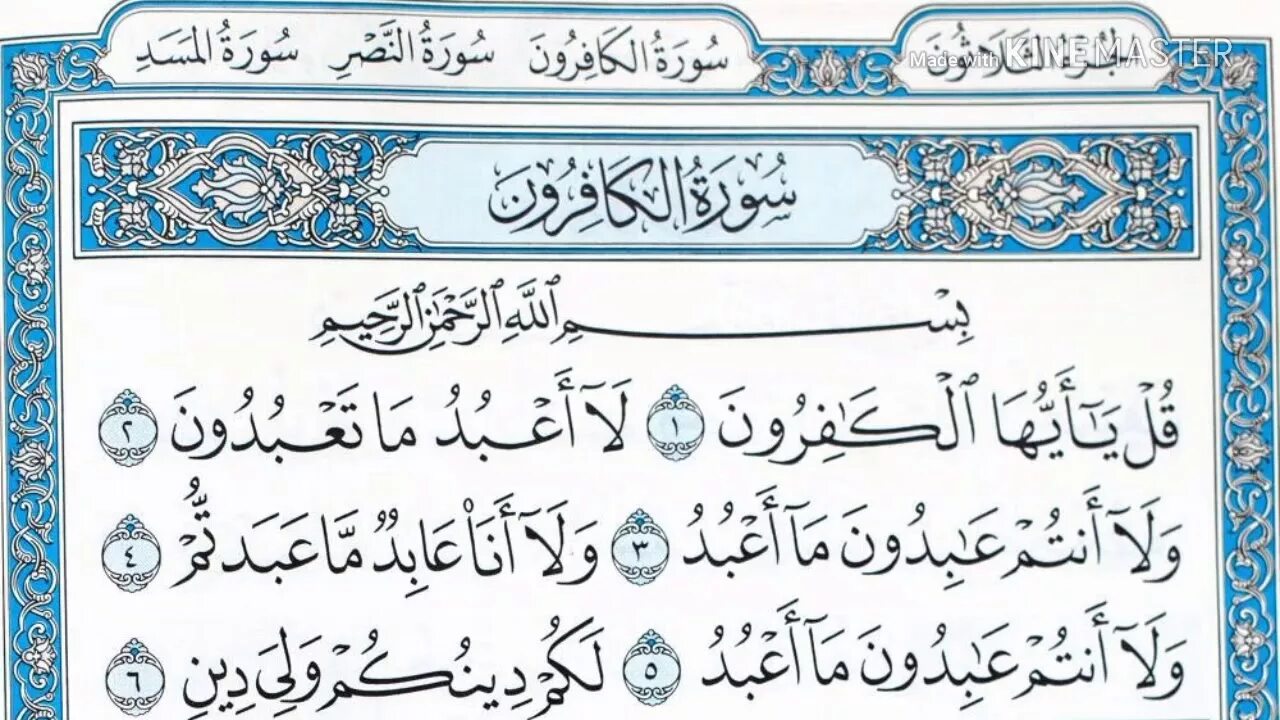 الجزء الثلاثون
سورة الكافرون سورة النصر سورة المسد
Made with KINEMASTER
سُورَةُ الكَافِرُونَ
بِسْمِ اللَّهِ الرَّحْمَٰنِ الرَّحِيمِ
قُلْ يَـٰٓأَيُّهَا ٱلْكَـٰفِرُونَ ١ لَآ أَعْبُدُ مَا تَعْبُدُونَ ٢
وَلَآ أَنتُمْ عَـٰبِدُونَ مَآ أَعْبُدُ ٣ وَلَآ أَنَا۠ عَابِدٌ مَّا عَبَدتُّمْ ٤
وَلَآ أَنتُمْ عَـٰبِدُونَ مَآ أَعْبُدُ ٥ لَكُمْ دِينُكُمْ وَلِىَ دِينِ ٦